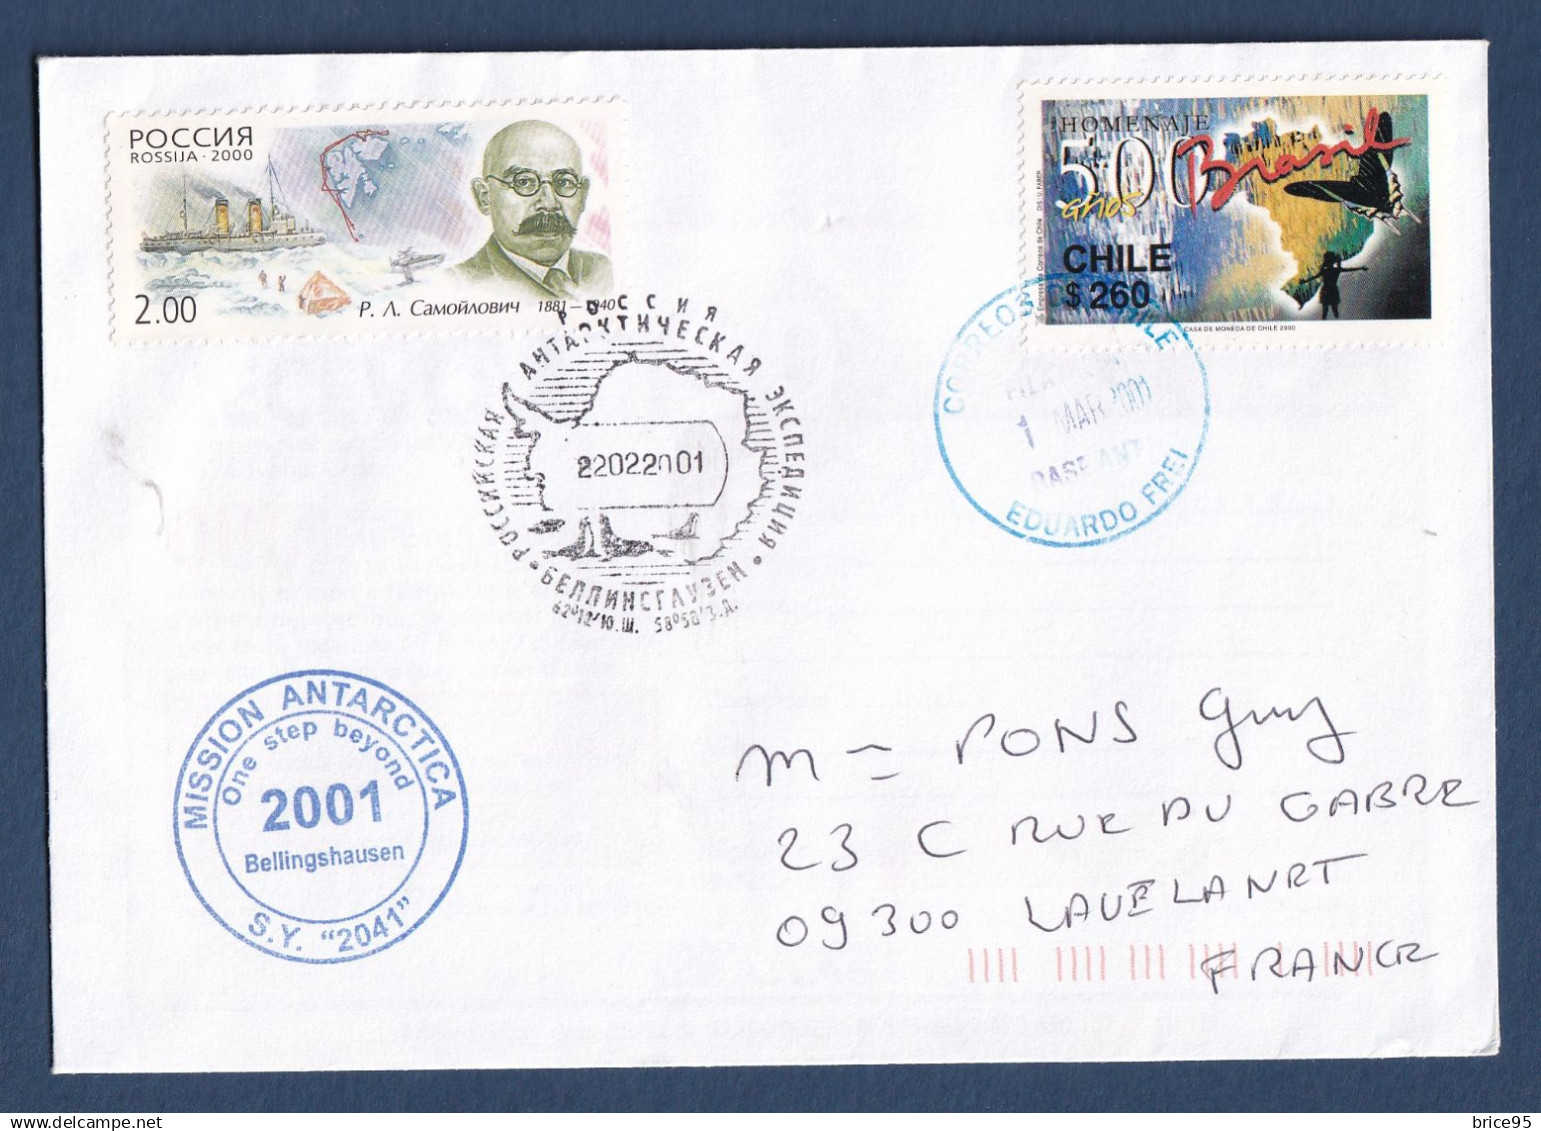 РОССИЯ
ROSSIJA · 2000
2.00
Р. Л. Самойлович 1881–1940
HOMENAJE
500 Brasil
años
CHILE
$ 260
CASA DE MONEDA DE CHILE 2000
РОССИЯ
РОССИЙСКАЯ АНТАРКТИЧЕСКАЯ ЭКСПЕДИЦИЯ
22022001
• БЕЛЛИНСГАУЗЕН •
62°12'Ю.Ш. 58°58'З.Д.
CORREOS DE CHILE
1 MAR 2001
BASE ANT
EDUARDO FREI
MISSION ANTARCTICA
One step beyond
2001
Bellingshausen
S.Y. "2041"
PONS Guy
23 C RUE DU GABRE
09300 LAVELANET
FRANCE
delcampe.net
brice95